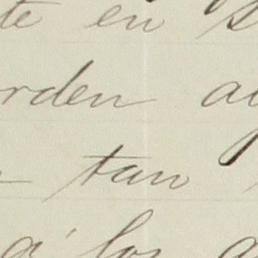 te en s
rden a
tan
a los a